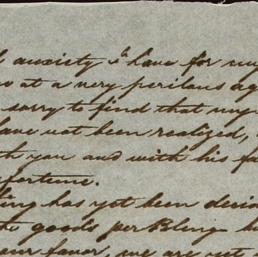 anxiety to have for my
at a very perilous ag
sorry to find that my
have not been realized,
th you and with his fa
fortune.
ing has yet been deci
goods per Blenz
our favor, we are not